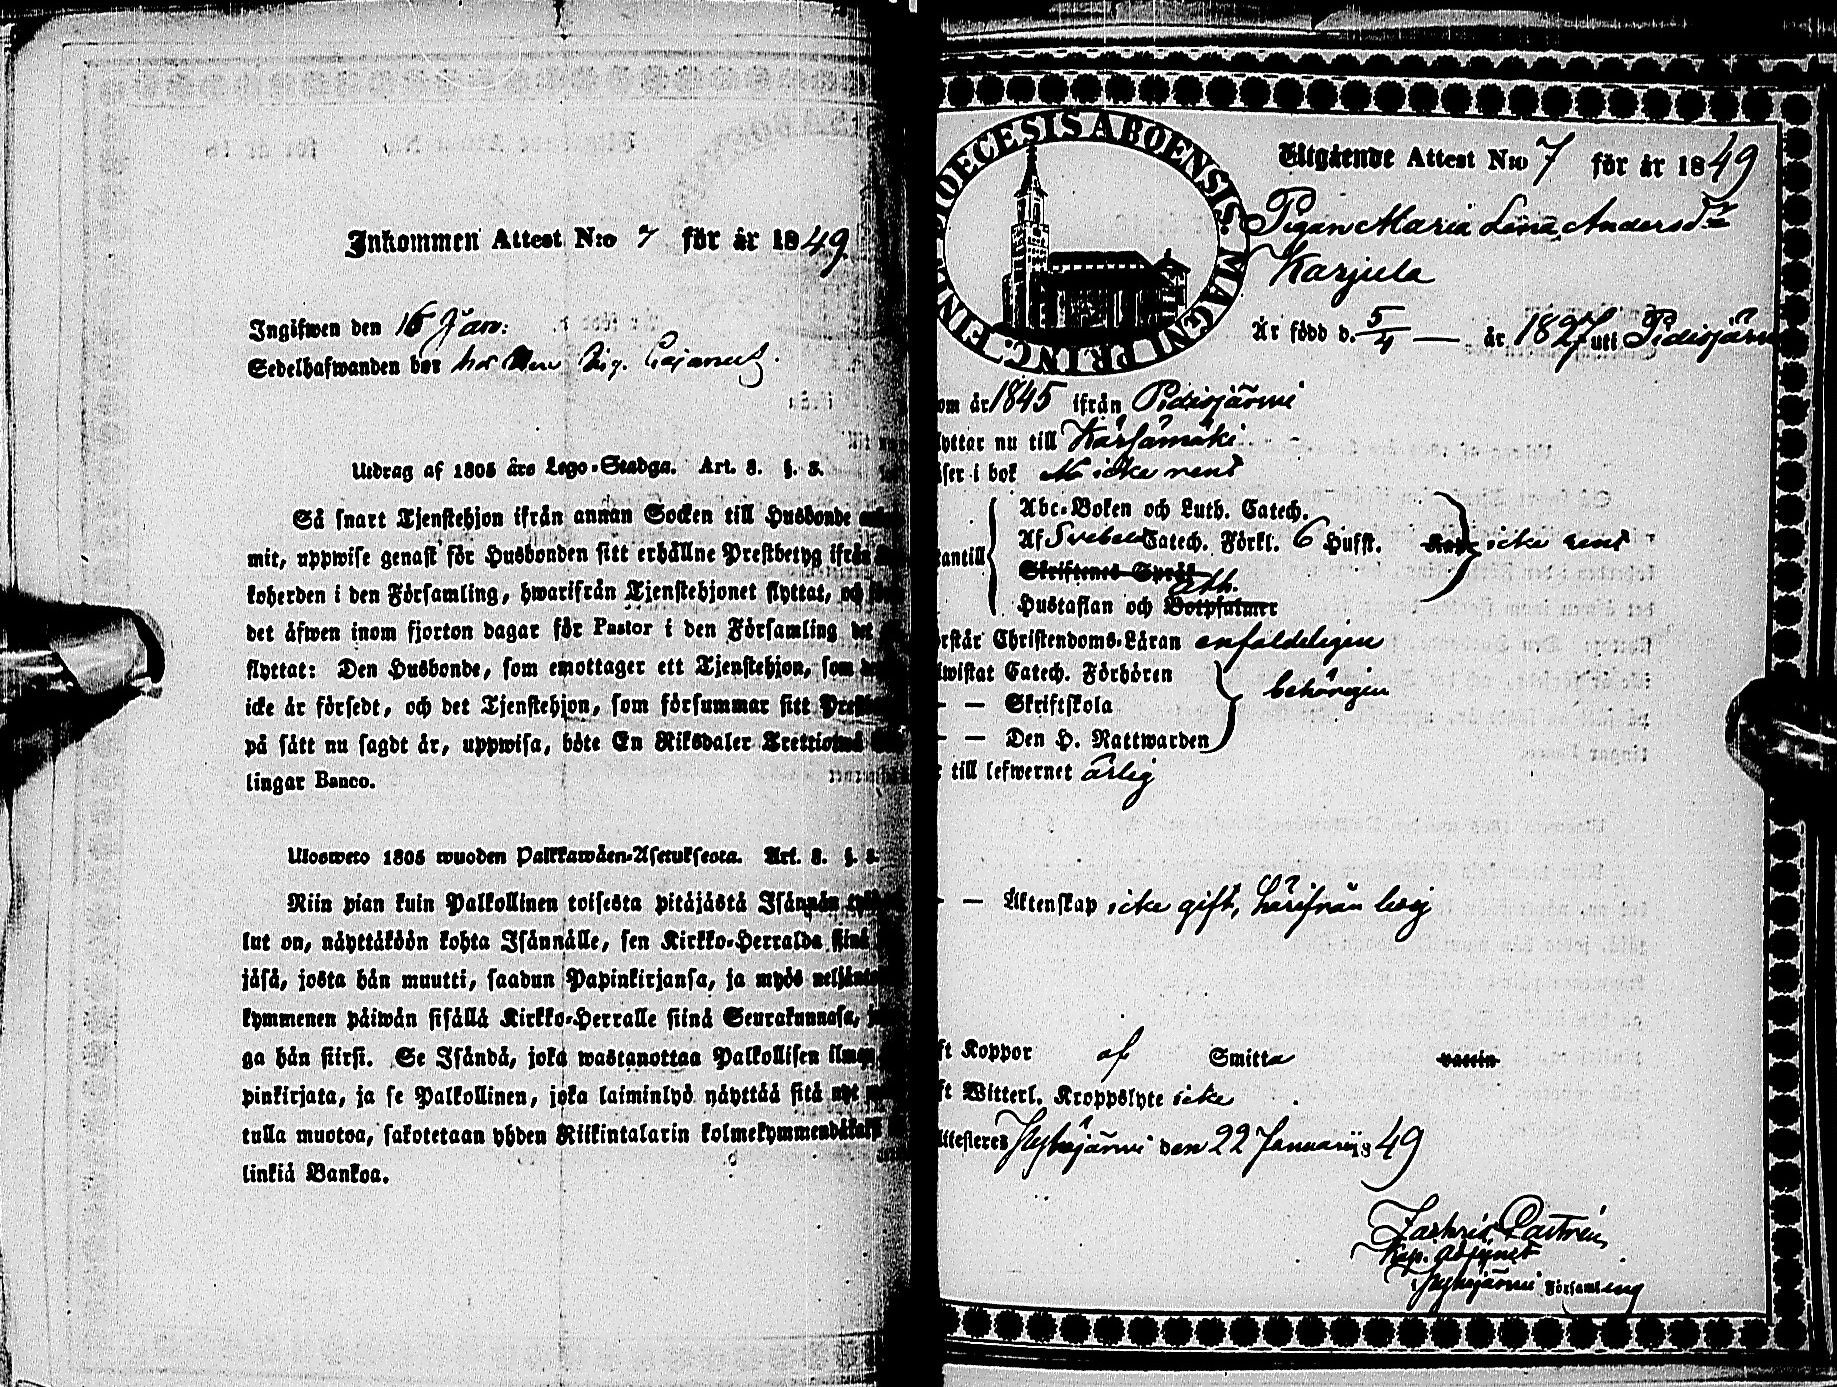 Inkommen Attest N:o 7 för år 1849.
Ingifwen den 16 Jan:
Sedelhafwanden bor hos
Utdrag af 1805 års Lego-Stadga. Art. 8. §. 8.
Så snart Tjenstehjon ifrån annan Socken till Husbonde
mit, uppwise genast för Husbonden sitt erhållne Prestbetyg ifrån
koherden i den Församling, hwarifrån Tjenstehjonet flyttat, och
det äfwen inom fjorton dagar för Pastor i den Församling det
flyttat: Den Husbonde, som emottager ett Tjenstehjon, som
icke är försedt, och det Tjenstehjon, som försummar sitt
på sätt nu sagdt är, uppwisa, böte En Riksdaler
lingar Banco.
Ulosweto 1805 wuoden Palkkawäen-Asetuksesta. Art. 8. §. 8.
Niin pian kuin Palkollinen toisesta pitäjästä Isännän
lut on, näyttäköön kohta Isännälle, sen Kirkko-Herralda siinä
jäsä, josta hän muutti, saadun Papinkirjansa, ja myös
kymmenen päiwän sisällä Kirkko-Herralle siinä Seurakunnasa,
ga hän siirsi. Se Isändä, joka wastanottaa Palkollisen ilman
pinkirjata, ja se Palkollinen, joka laiminlyö näyttää sitä nyt
tulla muotoa, sakotetaan yhden Riikintalarin
linkiä Bankoa.
DIOECESIS ABOENSIS. MAGNI PRINC. FINL.
Utgående Attest N:o 7 för år 1849
Pigan Maria Lena Andersd:r
Karjula
Är född d. 5/4 — år 1827 uti Pidisjärvi
om år 1845 ifrån Pidisjärvi
lyttar nu till Kärsämäki
ser i bok icke rent
Abc-Boken och Luth. Catech.
Af Svebelii Catech. Förkl. 6 Hufst. icke rent
antill
Skriftenes Språk
Ath.
Hustaflan och Botpsalmer
rstår Christendoms-Läran enfaldeligen
wistat Catech. Förhören
— — Skriftskola behörigen
— — Den H. Nattwarden
till lefwernet ärlig
— — Äktenskap icke gift, härifrån ledig
ft Koppor af Smitta vaccin
ft Witterl. Kroppslyte icke
ttesteres Pyhäjärvi den 22 Januarii 1849
Zachris Castrén
Kap. Adjunct
Pyhäjärvi Församling